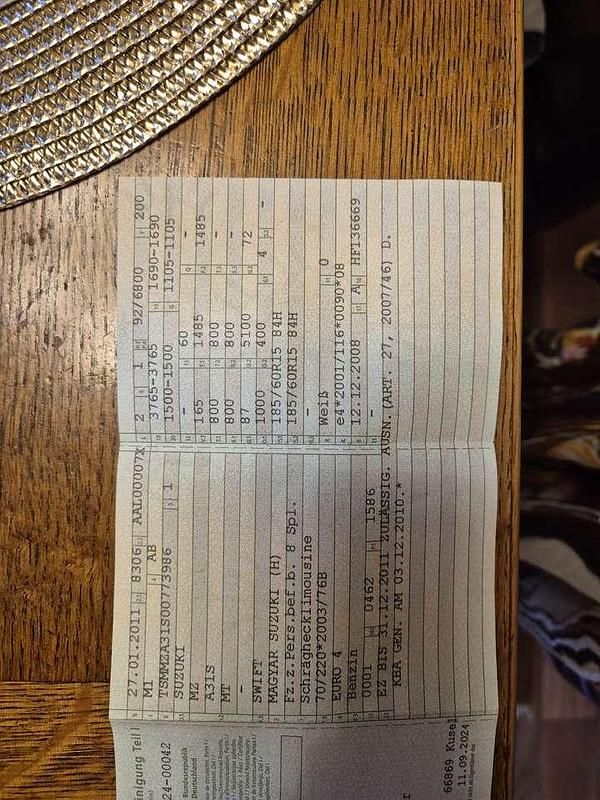 27.01.2011 8306 AAL00007X
M1 AB
TSMMZA31S00773986 1
SUZUKI
MZ
A31S
MT
-
SWIFT
MAGYAR SUZUKI (H)
Fz.z.Pers.bef.b. 8 Spl.
Schräghecklimousine
70/220*2003/76B
EURO 4
Benzin
0001 0462 1586
EZ BIS 31.12.2011 ZULÄSSIG. AUSN.(ART. 27, 2007/46) D.
KBA GEN. AM 03.12.2010.*
2 1 92/6800 200
3765-3765 1690-1690
1500-1500 1105-1105
- 60 -
165 1485 1485
800 800 -
800 800 -
87 5100 72
1000 400 4 -
185/60R15 84H
185/60R15 84H
-
weiß 0
e4*2001/116*0090*08
12.12.2008 A HF136669
-
inigung Teil I
24-00042
Bundesrepublik
Deutschland
66869 Kusel
11.09.2024